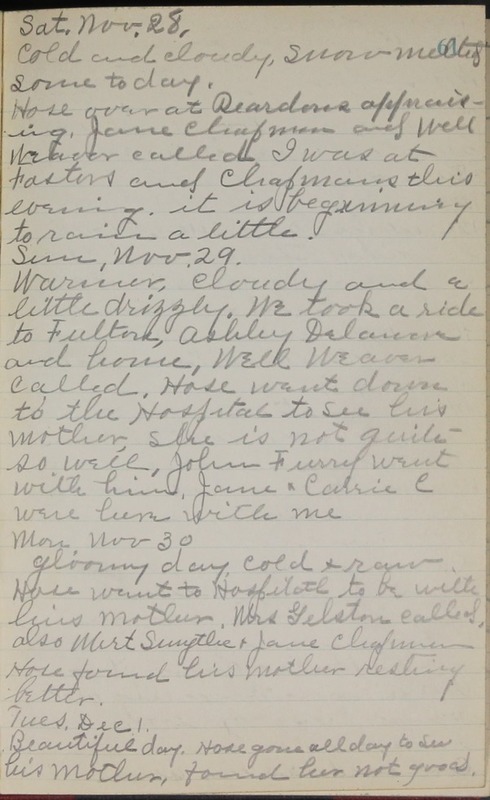 Sat. Nov. 28.
Cold and cloudy, Snow melted
some today.
Hose over at Reardons apprais-
ing. Jane Chapman and Well
Weaver called. I was at
Fosters and Chapmans this
evening. it is beginning
to rain a little.
Sun, Nov. 29.
Warmer, cloudy and a
little drizzly. We took a ride
to Fulton, Ashley Delaware
and home, Well Weaver
called. Hose went down
to the Hospital to see his
mother, she is not quite
so well, John Furry went
with him, Jane & Carrie C
were here with me
Mon Nov 30
gloomy day cold & raw.
Hose went to Hospital to be with
his mother. Mrs Gelston called,
also Mert Smythe & Jane Chapman
Hose found his mother resting
better.
Tues. Dec 1.
Beautiful day. Hose gone all day to see
his mother, found her not good.